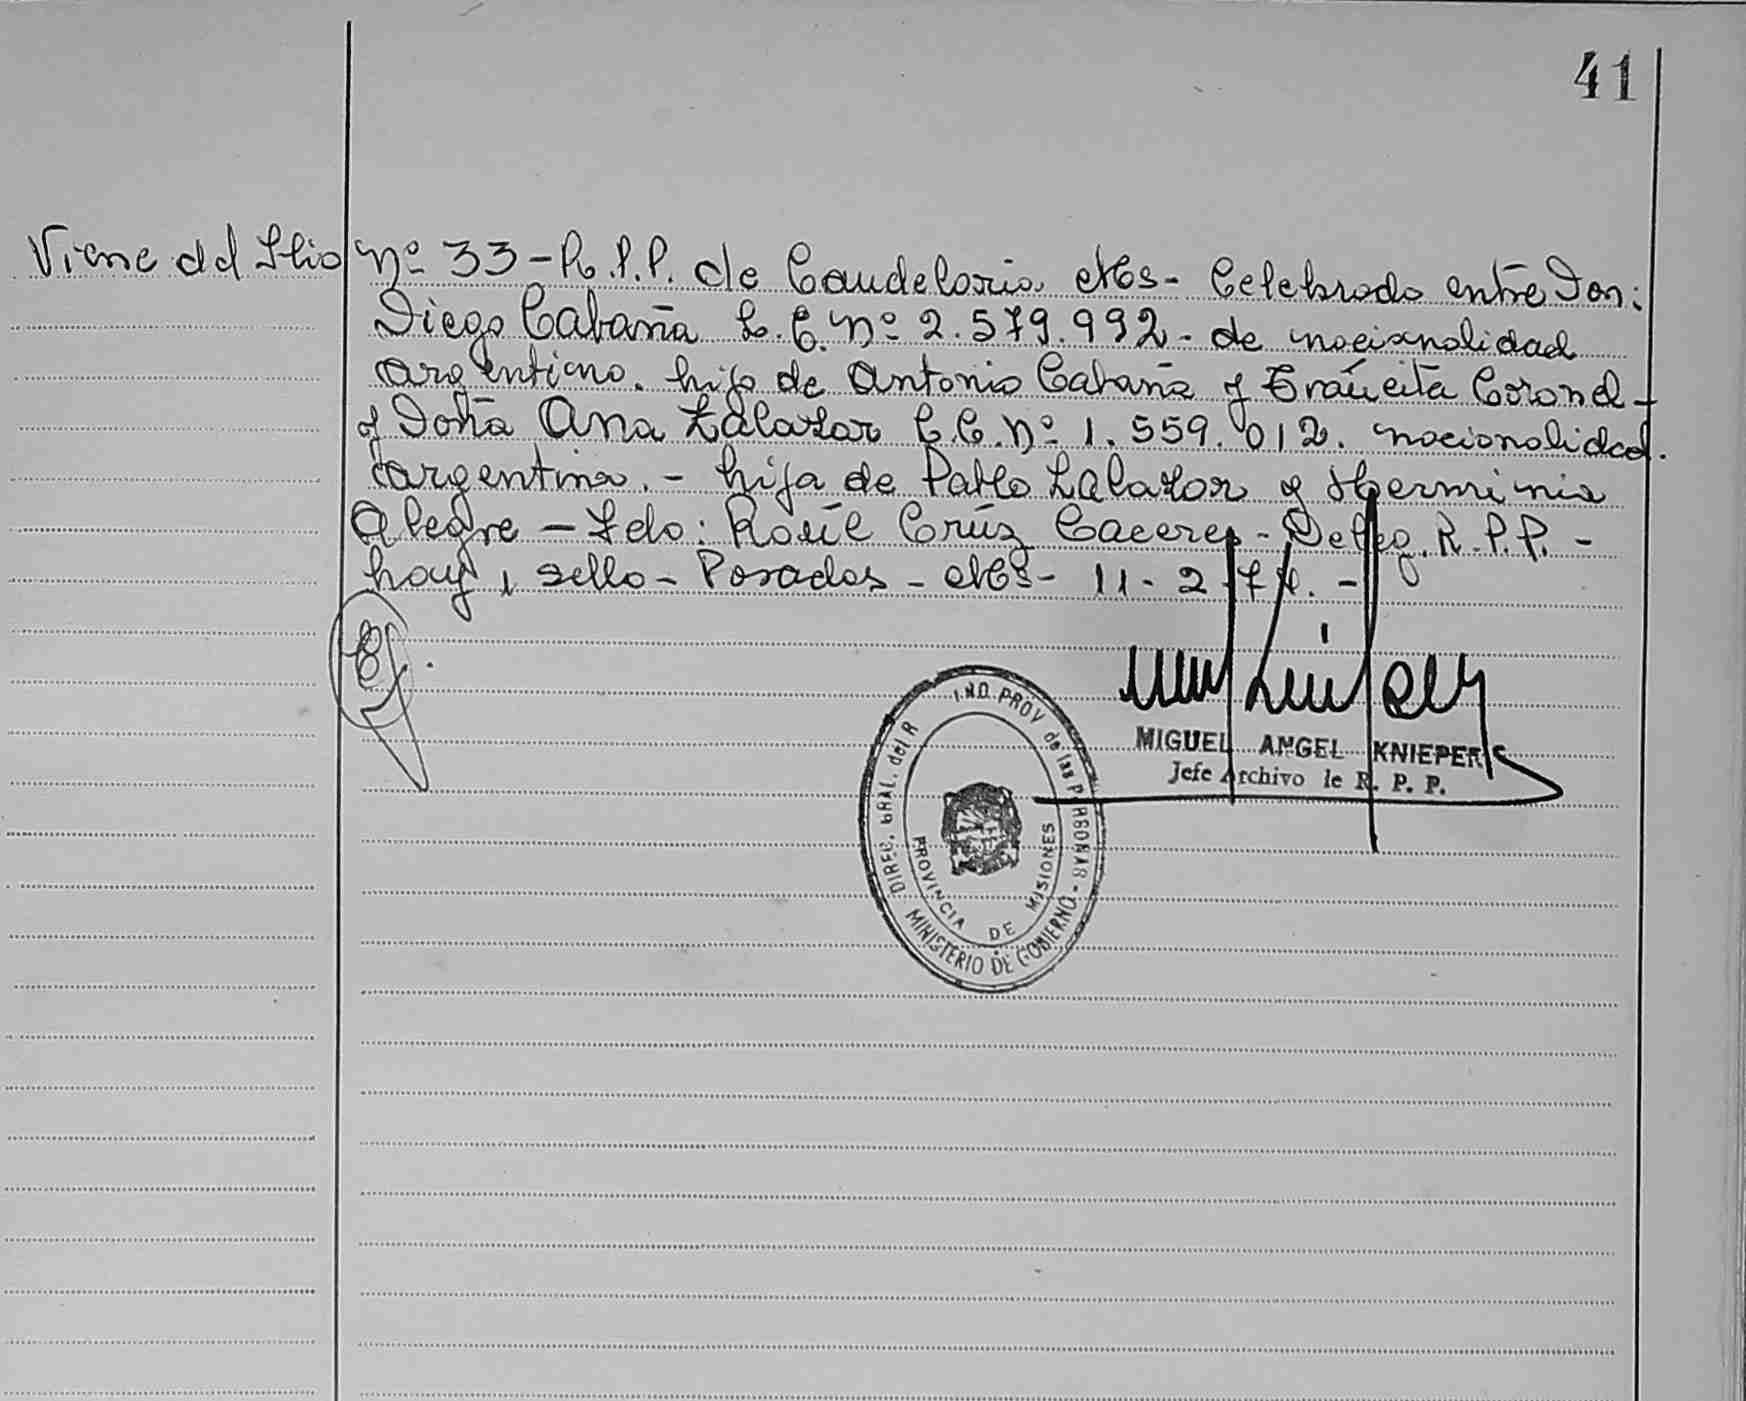 41
Viene del flio nº 33 - R.P.P. de Candelaria Mcs - Celebrado entre Don:
Diego Cabaña L.E. nº 2.579.992 - de nacionalidad
argentino. hijo de Antonio Cabaña y Tráncita Coronel -
y Doña Ana Zalazar L.C. nº 1.559.012. nacionalidad.
argentina. - hija de Pablo Zalazar y Herminia
Alegre - Fdo: Cruz Caceres - Deleg. R.P.P. -
hay 1 sello - Posadas - Mcs - 11 - 2 - 74. -
MIGUEL ANGEL KNIEPERS
Jefe Archivo de R. P. P.
DIREC. GRAL. del R IND. PROV de las PERSONAS - MINISTERIO DE GOBIERNO
PROVINCIA DE MISIONES